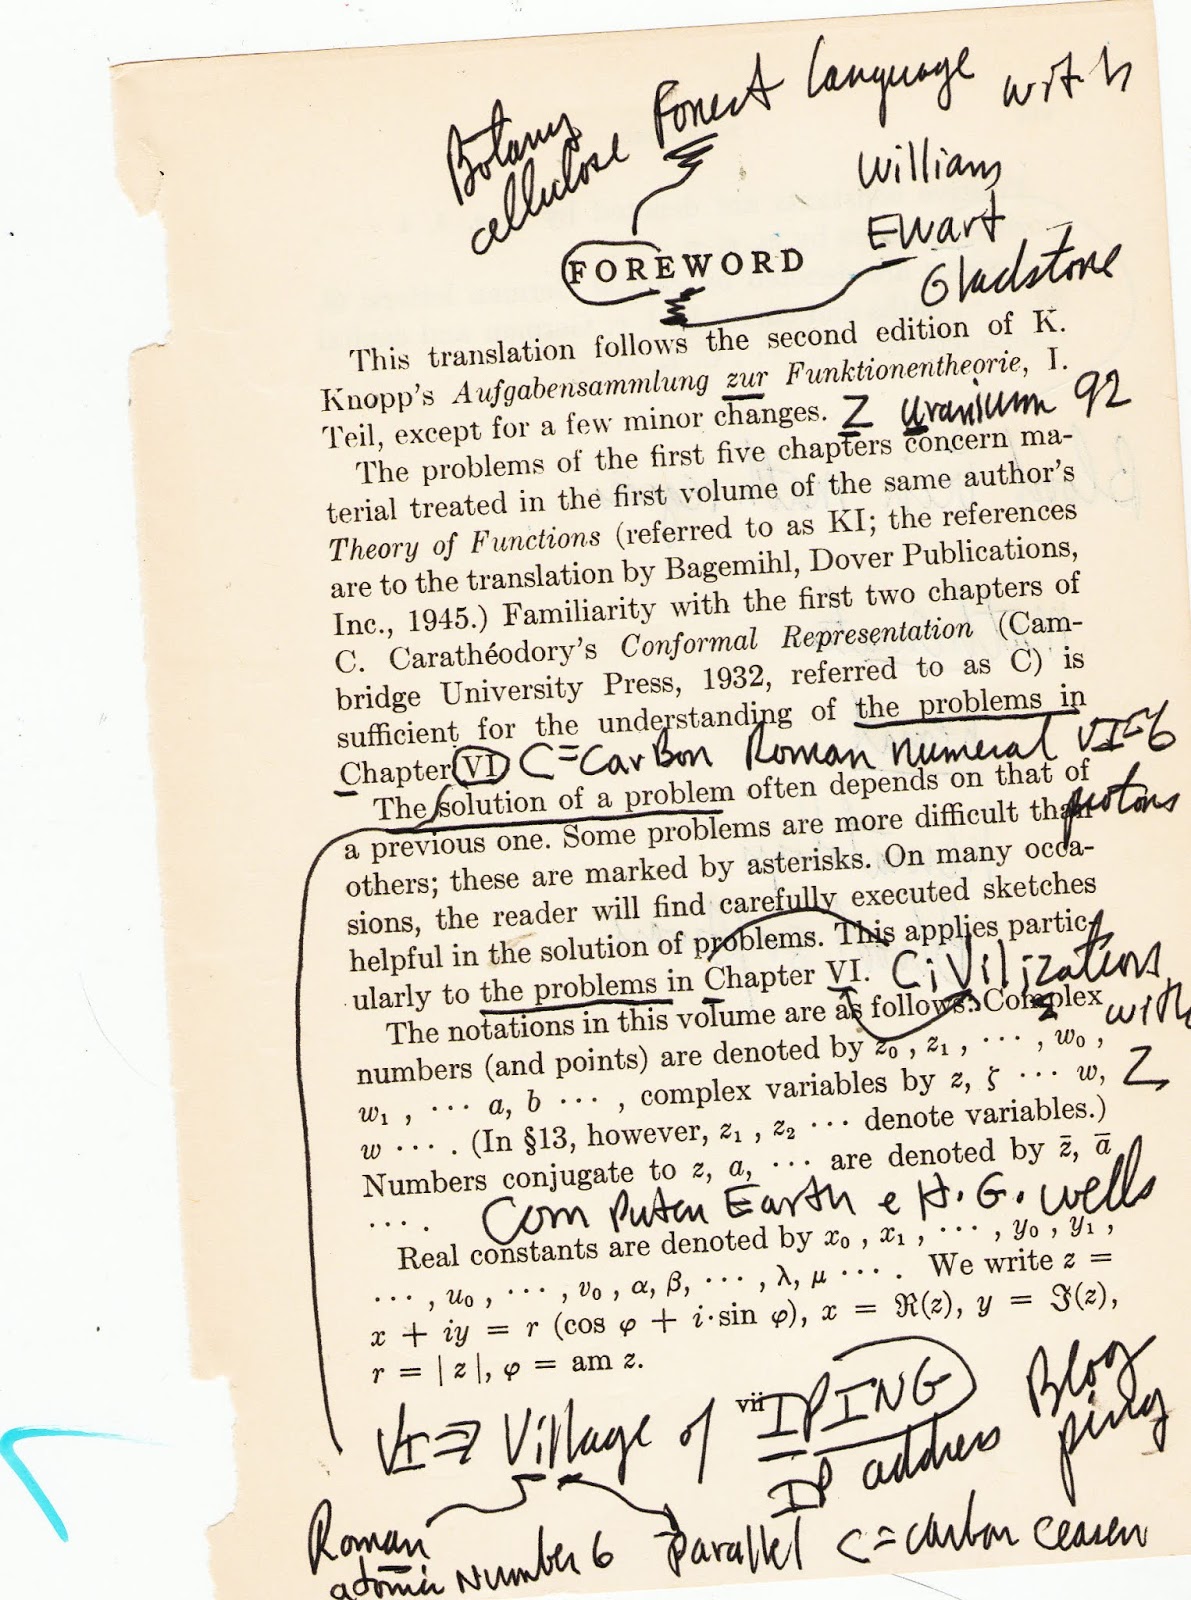 Forest Language with
Botany
cellulose
William
Ewart
Gladstone
FOREWORD
This translation follows the second edition of K.
Knopp's Aufgabensammlung zur Funktionentheorie, I.
Teil, except for a few minor changes. Z Uranium 92
The problems of the first five chapters concern ma-
terial treated in the first volume of the same author's
Theory of Functions (referred to as KI; the references
are to the translation by Bagemihl, Dover Publications,
Inc., 1945.) Familiarity with the first two chapters of
C. Carathéodory's Conformal Representation (Cam-
bridge University Press, 1932, referred to as C) is
sufficient for the understanding of the problems in
Chapter VI C=Carbon Roman numeral VI=6
protons
The solution of a problem often depends on that of
a previous one. Some problems are more difficult than
others; these are marked by asterisks. On many occa-
sions, the reader will find carefully executed sketches
helpful in the solution of problems. This applies partic-
ularly to the problems in Chapter VI. CiVilizations
with
Z
The notations in this volume are as follows: Complex
numbers (and points) are denoted by z₀ , z₁ , ··· , w₀ ,
w₁ , ··· a, b ··· , complex variables by z, ζ ··· w,
w ··· . (In §13, however, z₁ , z₂ ··· denote variables.)
Numbers conjugate to z, a, ··· are denoted by z̄, ā
···. Com Puter Earth e H. G. Wells
Real constants are denoted by x₀ , x₁ , ··· , y₀ , y₁ ,
··· , u₀ , ··· , v₀ , α, β, ··· , λ, μ ··· . We write z =
x + iy = r (cos φ + i·sin φ), x = ℜ(z), y = ℑ(z),
r = | z |, φ = am z.
vii
VI ⇒ Village of IPING
IP address
Blog
ping
Roman
atomic Number 6
Parallel C=carbon